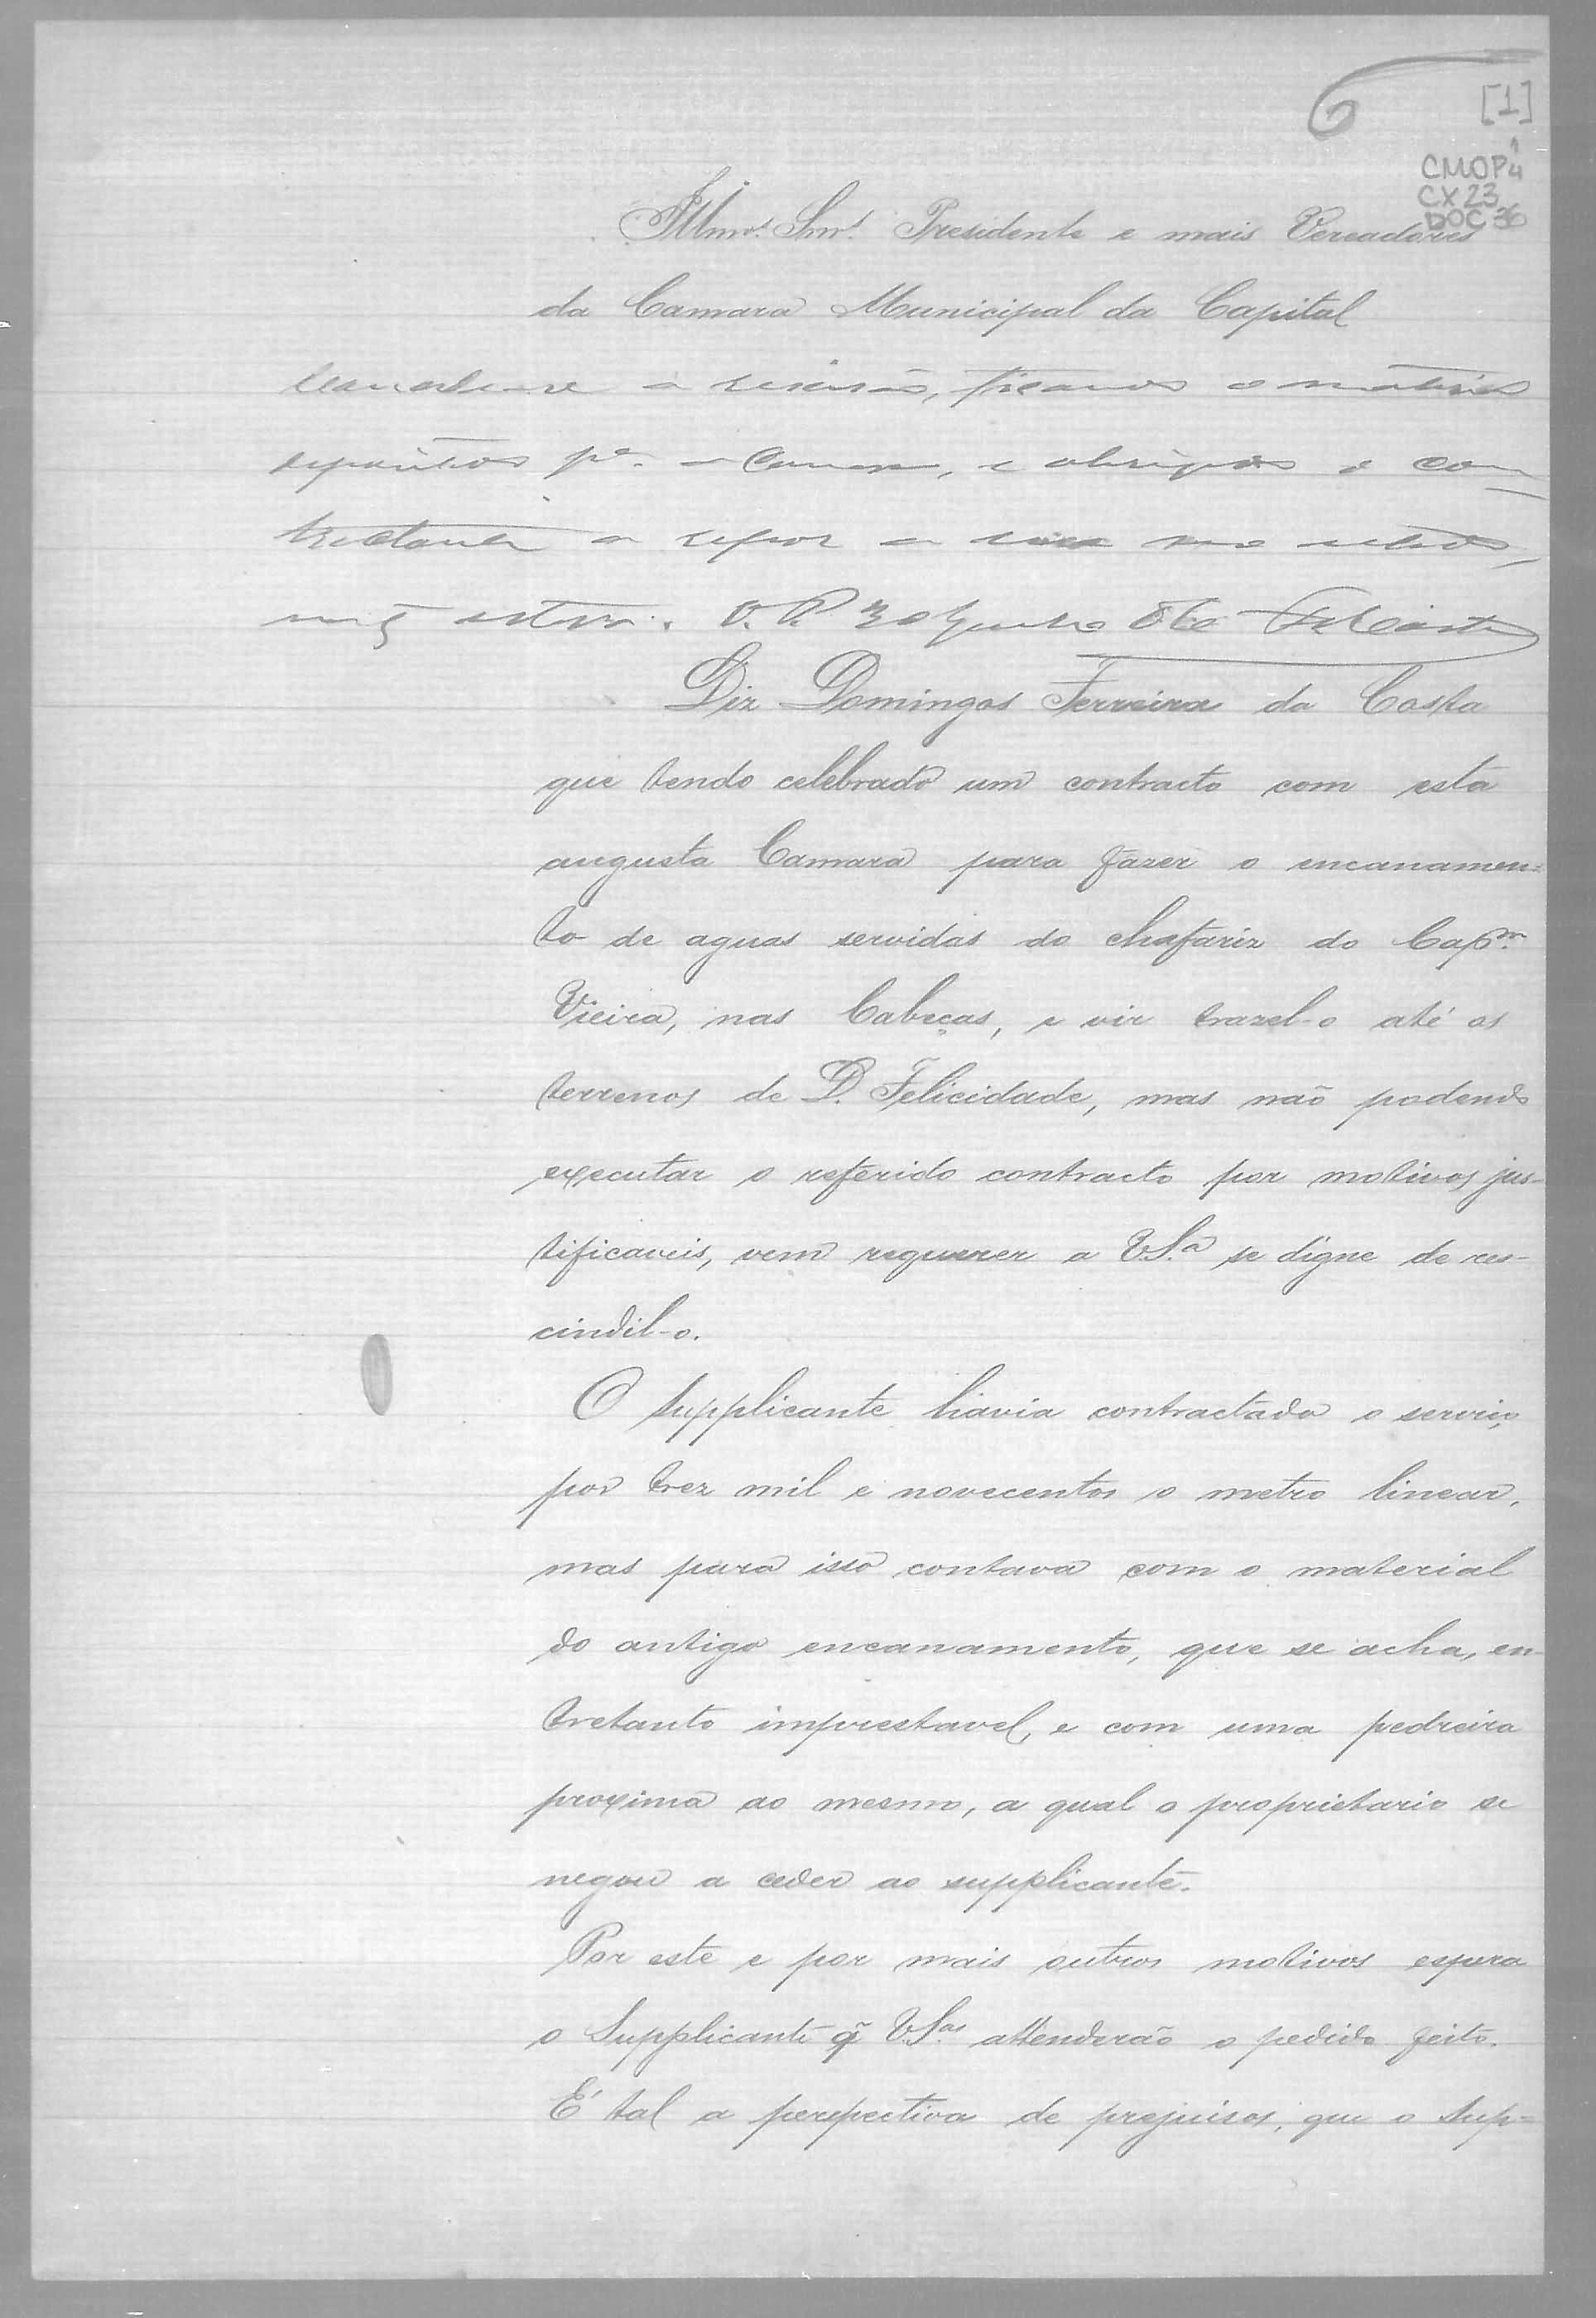 [1]
6
CMOP 4
CX 23
DOC 36
Illmos. Snrs. Presidente e mais Vereadores
da Camara Municipal da Capital
a rescisão, ficando o
pa. a Camara, e obrigado o con
tractante a repor a no
O. P. 30 Junho
Diz Domingos Ferreira da Costa
que tendo celebrado um contracto com esta
augusta Camara para fazer o encanamen=
to de aguas servidas do chafariz do Capm.
Vieira, nas Cabeças, e vir trazel-o até os
terrenos de D. Felicidade, mas não podendo
executar o referido contracto por motivos jus-
tificaveis, vem requerer a V.S.a se digne de res-
cindil-o.
O Supplicante havia contractado o serviço
por trez mil e novecentos o metro linear,
mas para isso contava com o material
do antigo encanamento, que se acha, en-
tretanto imprestavel, e com uma pedreira
proxima ao mesmo, a qual o proprietario se
negou a ceder ao supplicante.
Por este e por mais outros motivos espera
o Supplicante q̃ V.S.as attenderão o pedido feito.
É tal a perspectiva de prejuisos, que o Sup=